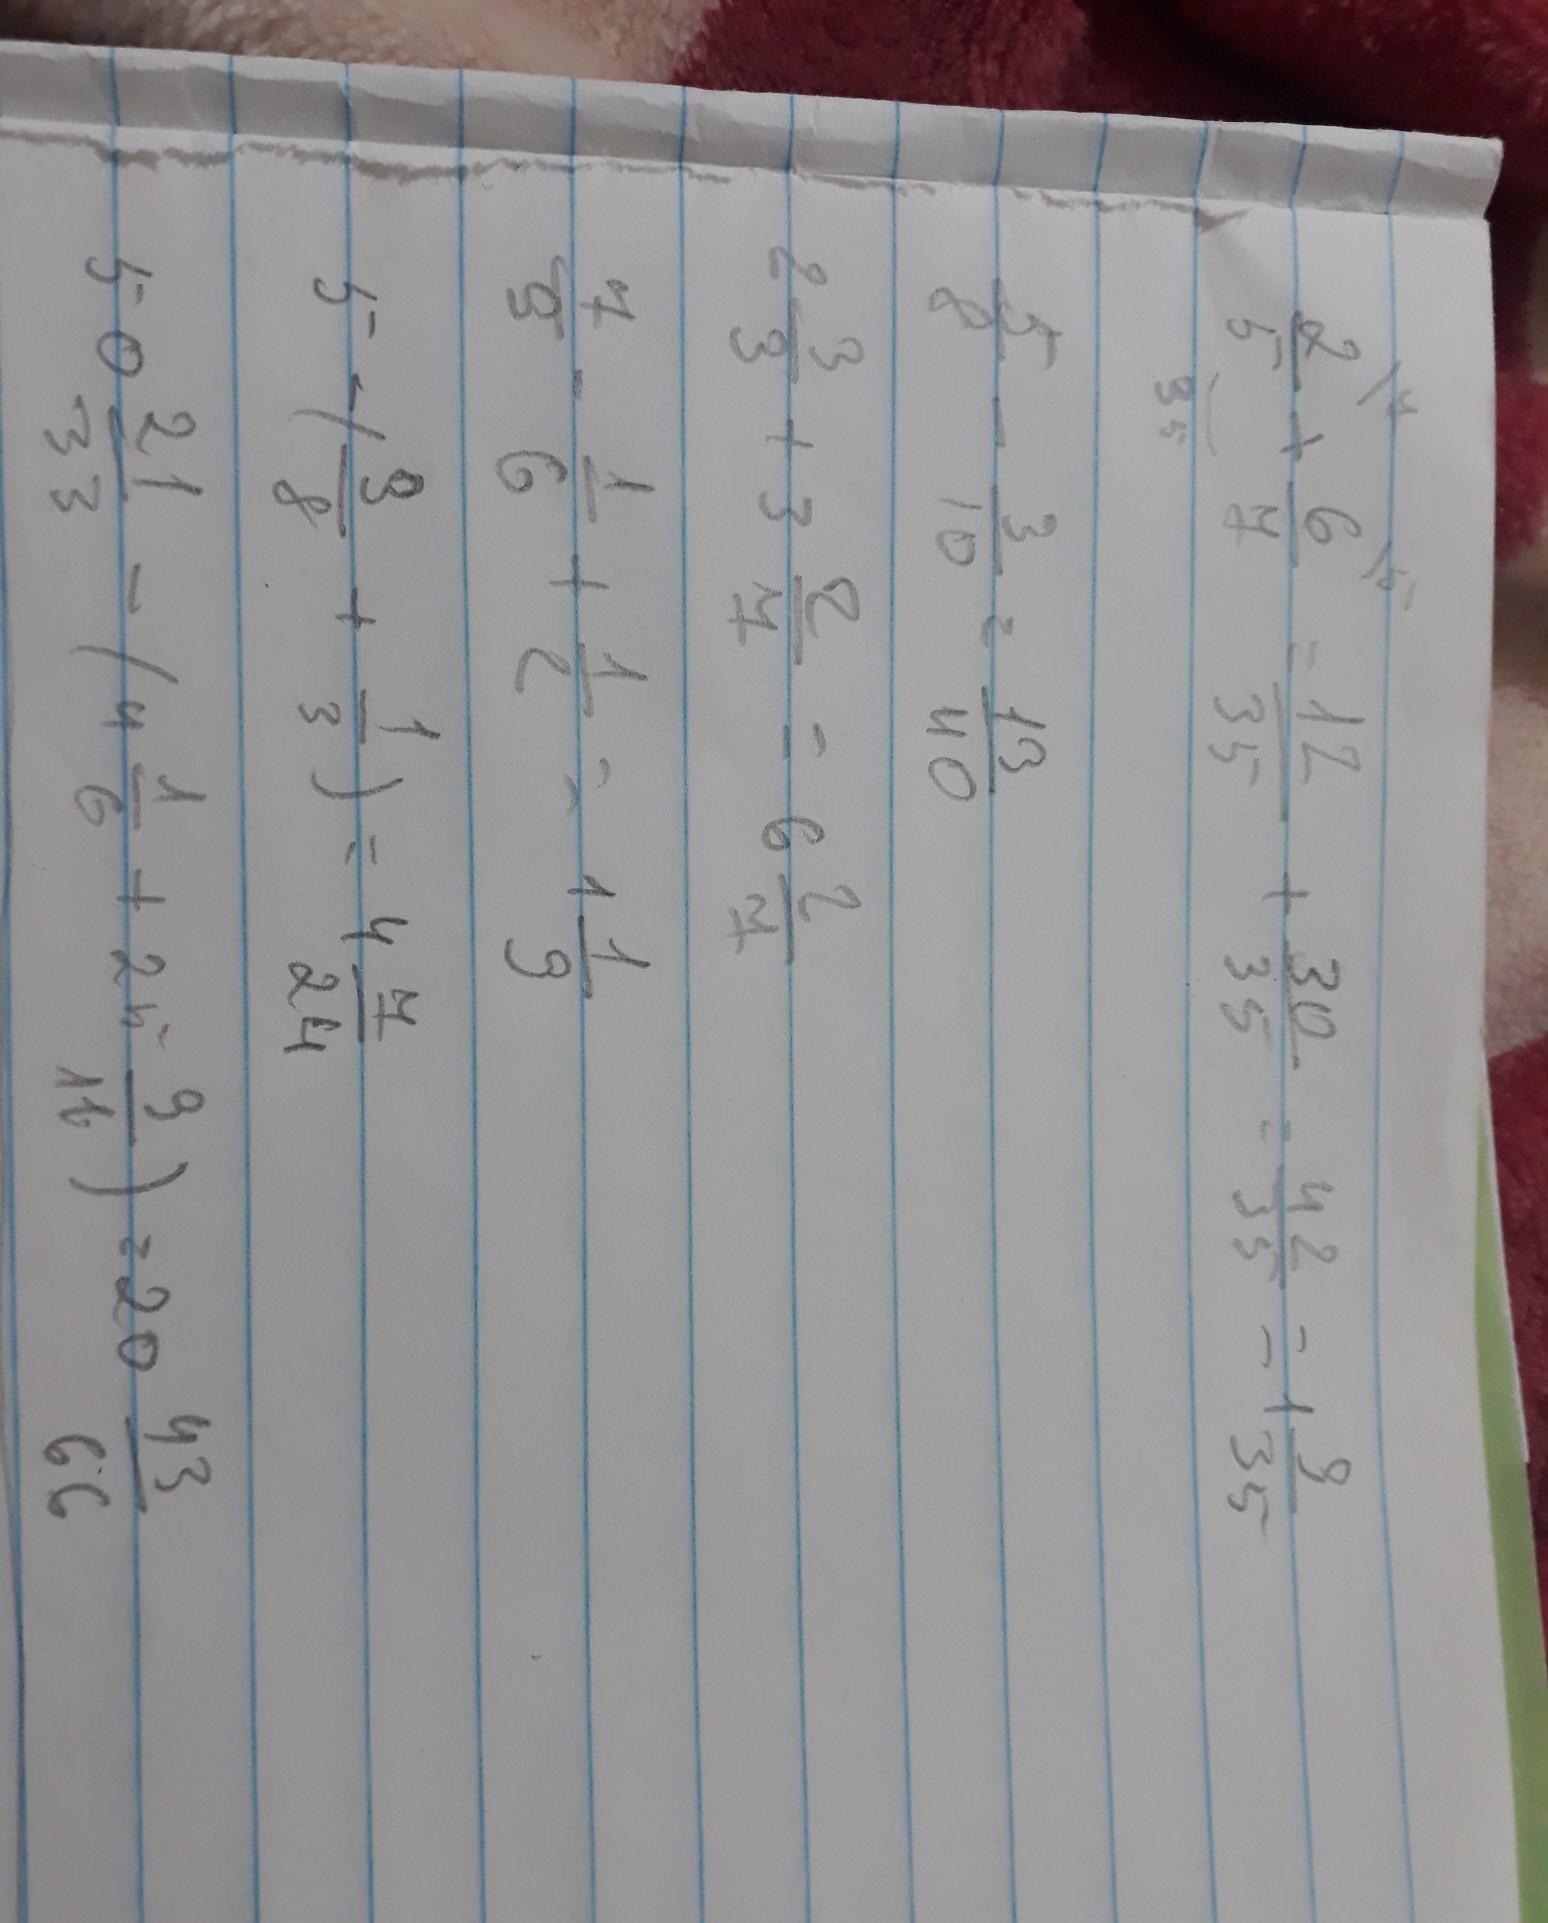 2/5 \7 + 6/7 \5 = 12/35 + 30/35 = 42/35 = 1 9/35
35
5/8 - 3/10 = 13/40
2 3/9 + 3 2/7 = 6 2/7
7/9 - 1/6 + 1/2 = 1 1/9
5 - ( 9/8 + 1/3 ) = 4 7/24
50 21/33 - ( 4 1/6 + 25 9/11 ) = 20 43/66